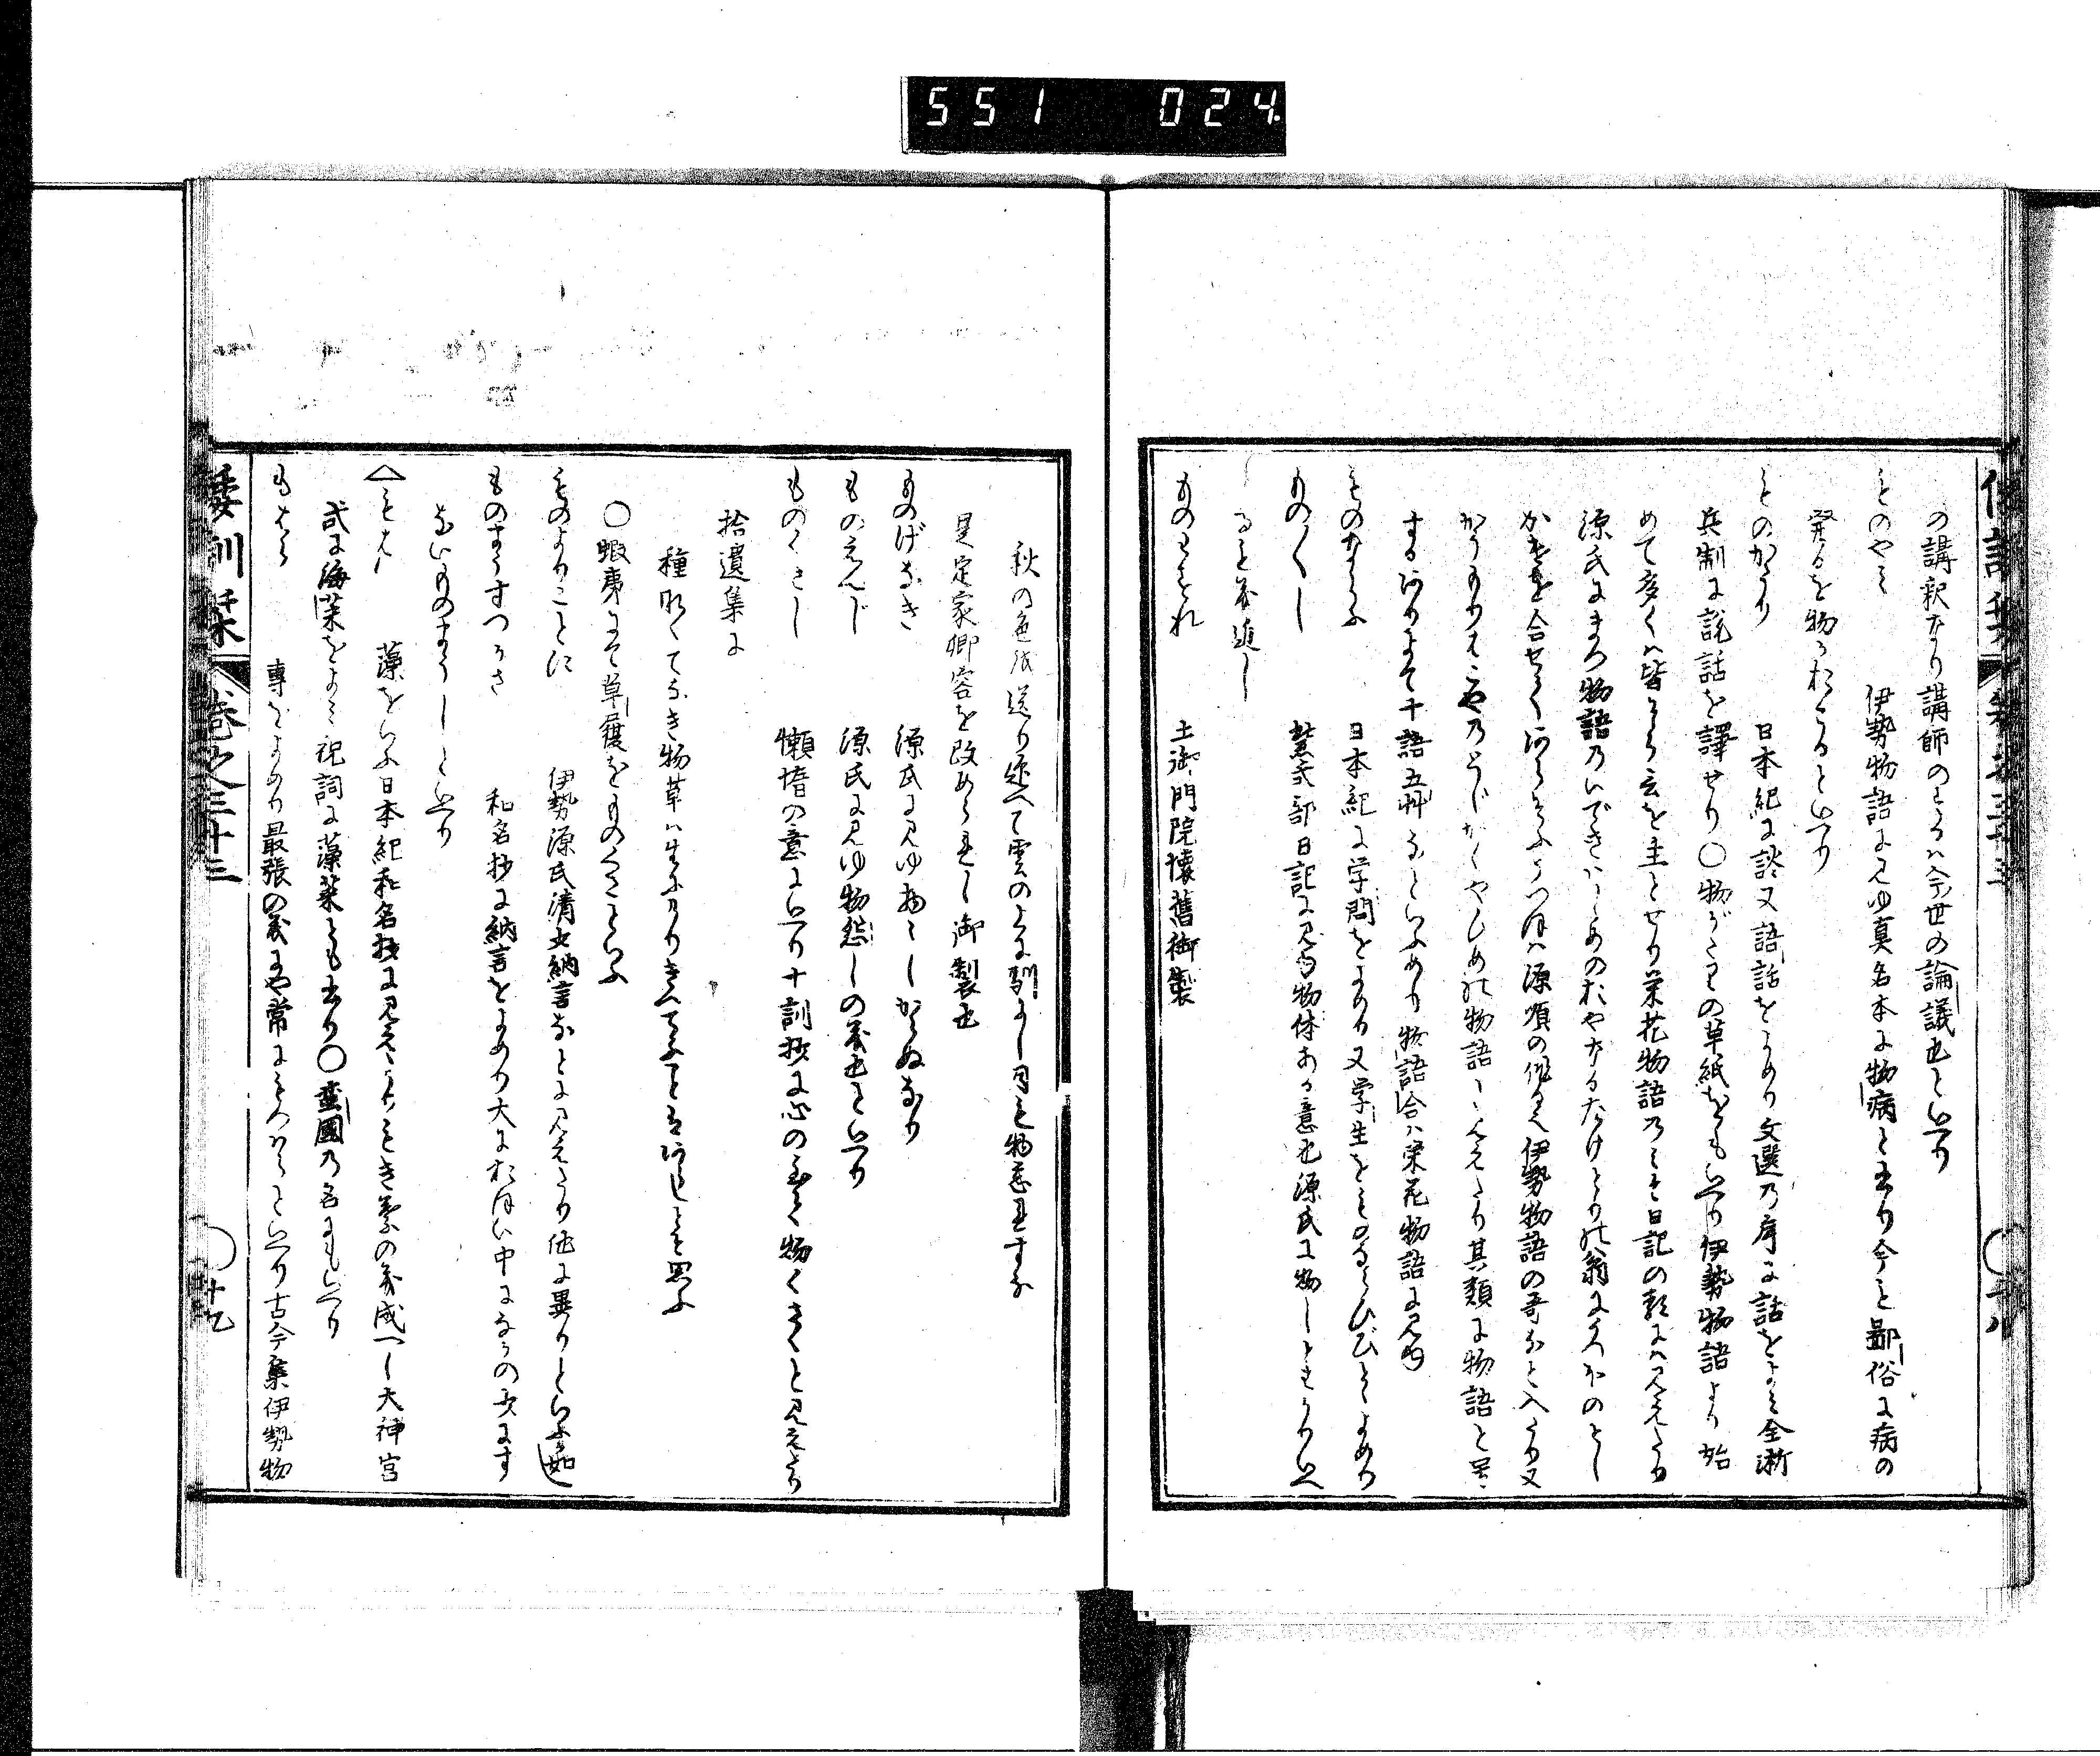 551 024
の講釈なり講師のよるハ今世の論議也といへり
ものやみ 伊勢物語に見ゆ真名本に物病と書り今も鄙俗に病の
発るを物のおこるといへり
ものがたり 日本紀に談又語話をよめり文選乃序に話をよみ全浙
兵制に説話を譯せり〇物がたりの草紙をもいへり伊勢物語より始
めて多くハ皆そら言を主とせり栄花物語乃みは日記の類にハ見えたり
源氏にまつ物語乃いできはしめのおやなるたけとりの翁にうつほのとし
かけを合せてあらそふうつほハ源順の作といへ伊勢物語の哥なと入たり又
からもりはこやのとじかくやひめの物語と見えたり其類に物語と号
する ありよて千語五艸なといふめり物語合ハ栄花物語に見ゆ
ものならふ 日本紀に学問をよめり又学生をものならひびとゝよめり
ものゝし 紫式部日記に見ゆ物体ある意也源氏に物しともかりいへ
ると義近し
ものわすれ 土御門院懐舊御製
秋の色を送り迎へて雲のよに馴にし月も物忘れすな
是定家卿容を改めらるゝ御製也
ものげなき 源氏に見ゆ物々しからぬなり
ものゑんじ 源氏に見ゆ物怨しの義也といへり
ものくさし 懶惰の意にいへり十訓抄に心の至て物くさくと見えたり
拾遺集に
種なくてなき物草ハ生にけりまくてふことはあらしとそ思ふ
〇蝦夷にて草履をものくさといふ
ものよりことに 伊勢源氏清少納言なとに見えたり他に異りといふ如し
ものまうすつかさ 和名抄に納言をよめり大におほい中になかの少にす
ないものまうしといへり
△もは 藻をいふ日本紀和名抄に見えたりもき葉の義成へし大神宮
式に海藻をよみ祝詞に藻菜とも書り〇蛮國乃名にもいへり
もはら 専をよめり最張の義にや常にもつはらといへり古今集伊勢物
倭訓栞 巻之三十三 〇十九